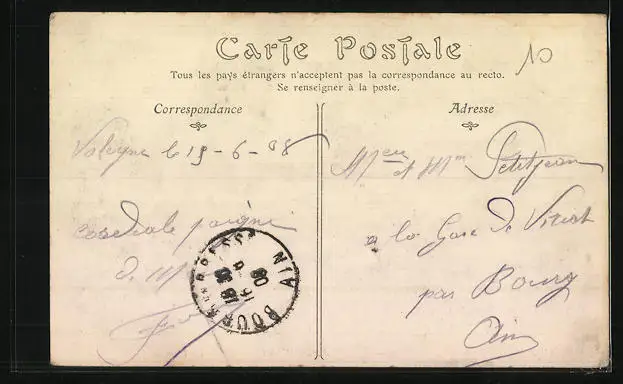 Carte Postale
10
Tous les pays étrangers n'acceptent pas la correspondance au recto.
Se renseigner à la poste.
Correspondance
Adresse
le 19-6-08
cordiale poignée
de m
Mr et Mme Petitjean
à la Gare de Viriat
par Bourg
Ain
BOURG
AIN